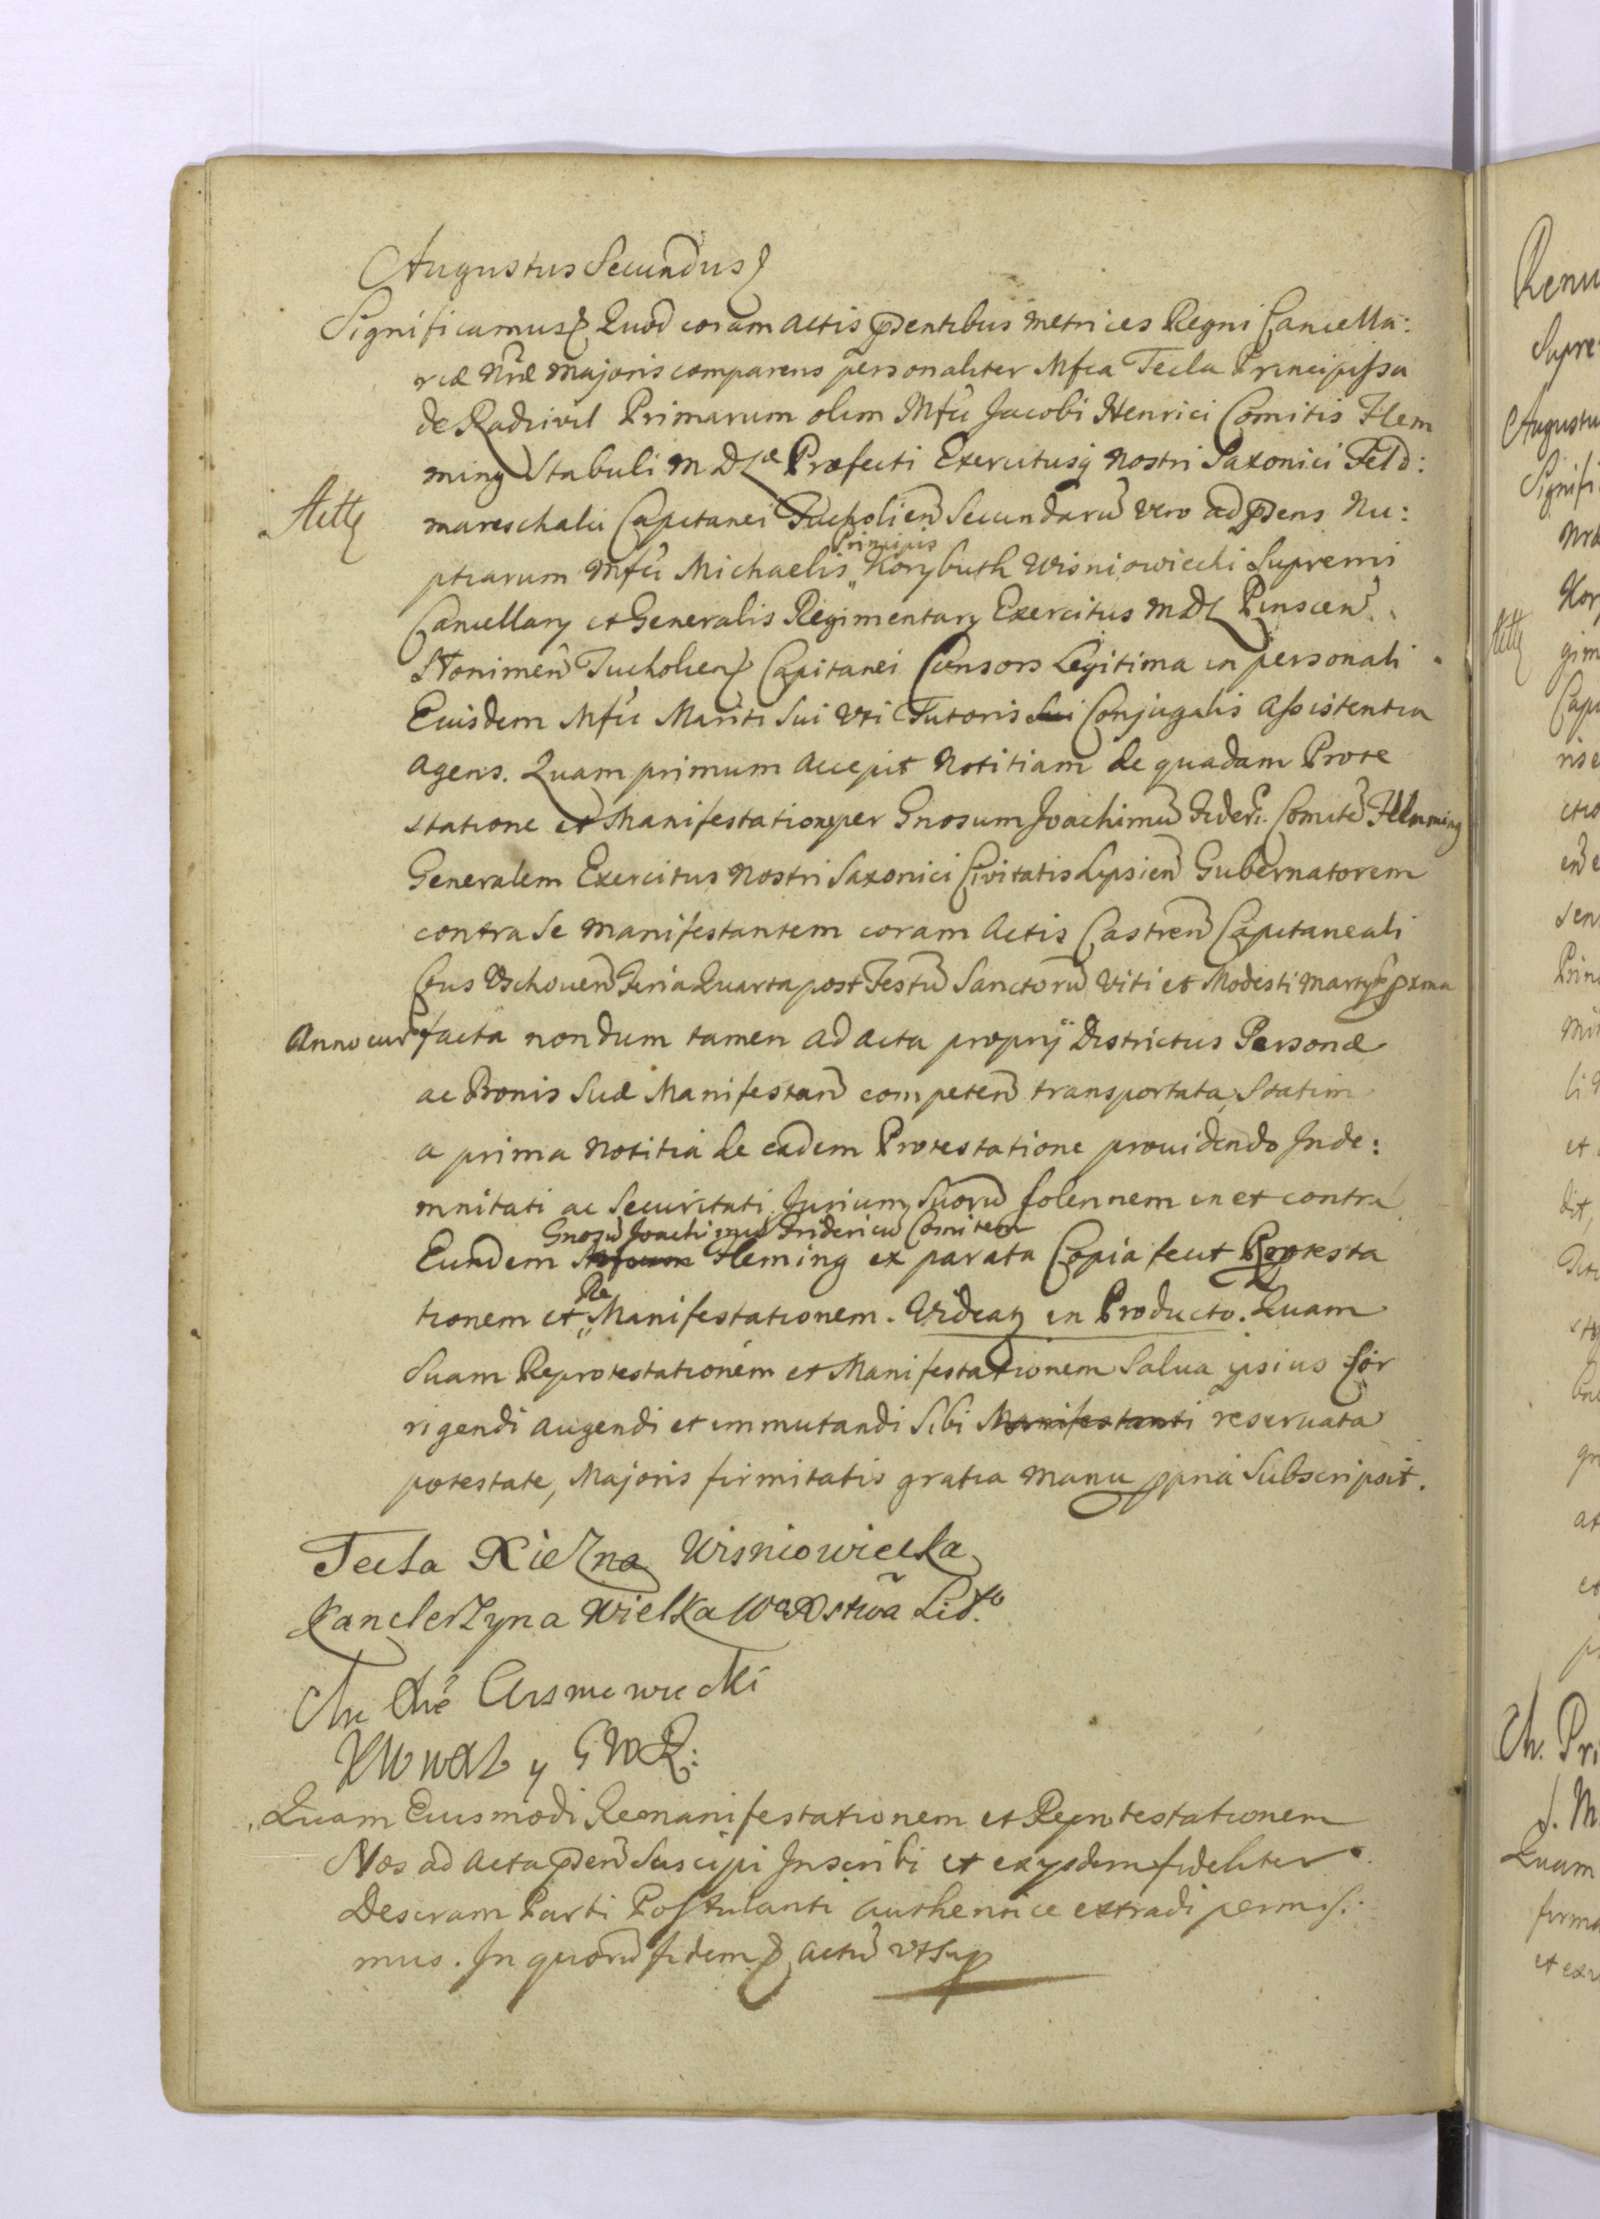 Augustus Secundus
Significamus Quod coram Actis pñentibus Metrices Regni Cancella:
riæ Nræ Majoris comparens personaliter Mfca Tecla Principissa
de Radzivil Primarum olim Mfci Jacobi Henrici Comitis Flem
ming Stabuli M D Læ Præfecti Exercitusq Nostri Saxonici Feld:
Actt mareschalci Capitanei Tucholien Secundaru vero ad pñens Nu:
ptiarum Mfci Michaelis Principis Korybuth Wisniowiecki Supremi
Cancellary et Generalis Regimentary Exercitus M D L Pinscen
Capitanei Consors Legitima in personali
Eiusdem Mfci Mariti Sui Uti Tutoris Sui Conjugalis Assistentia
Agens. Quam primum Accepit Notitiam de quadam Prote
statione et Manifestatione per Gnosum Joachimu Frideri. Comite Flemming
Generalem Exercitus Nostri Saxonici Civitatis Lypsien Gubernatorem
contra Se Manifestantem coram Actis Castren Capitaneali
bus Feria Quarta post Festu Sanctoru Viti et Modesti Marty
Anno cur facta nondum tamen ad Acta proprÿ Districtus Personæ
ac Bonis Suæ Manifestan competen transportata, Statim
a prima Notitia de eadem Protestatione providendo Inde:
mnitati ac Securitati Jurium Suoru solennem in et contra
Gnosu Joachimu Fridericu Comitem
Eundem Fleming ex parata Copia fecit Reprotesta
tionem et Re Manifestationem. Videatq in Producto. Quam
Suam Reprotestationem et Manifestationem Salva ipsius Cor
rigendi Augendi et immutandi Sibi Manifestanti reservata
potestate, Majoris firmitatis gratia Manu ppria Subscripsit.
Tecla XieZna Wisniowiecka
KanclerZyna Wielka W X stwa Lit.
Wisniowiecki
Quam Eiusmodi Remanifestationem et Reprotestationem
Nos ad Acta pñen Suscipi Inscribi et exysdem fideliter
Descriptam Parti Postulanti authentice extradi permisi:
mus. In quoru fidem Actu ut Sup